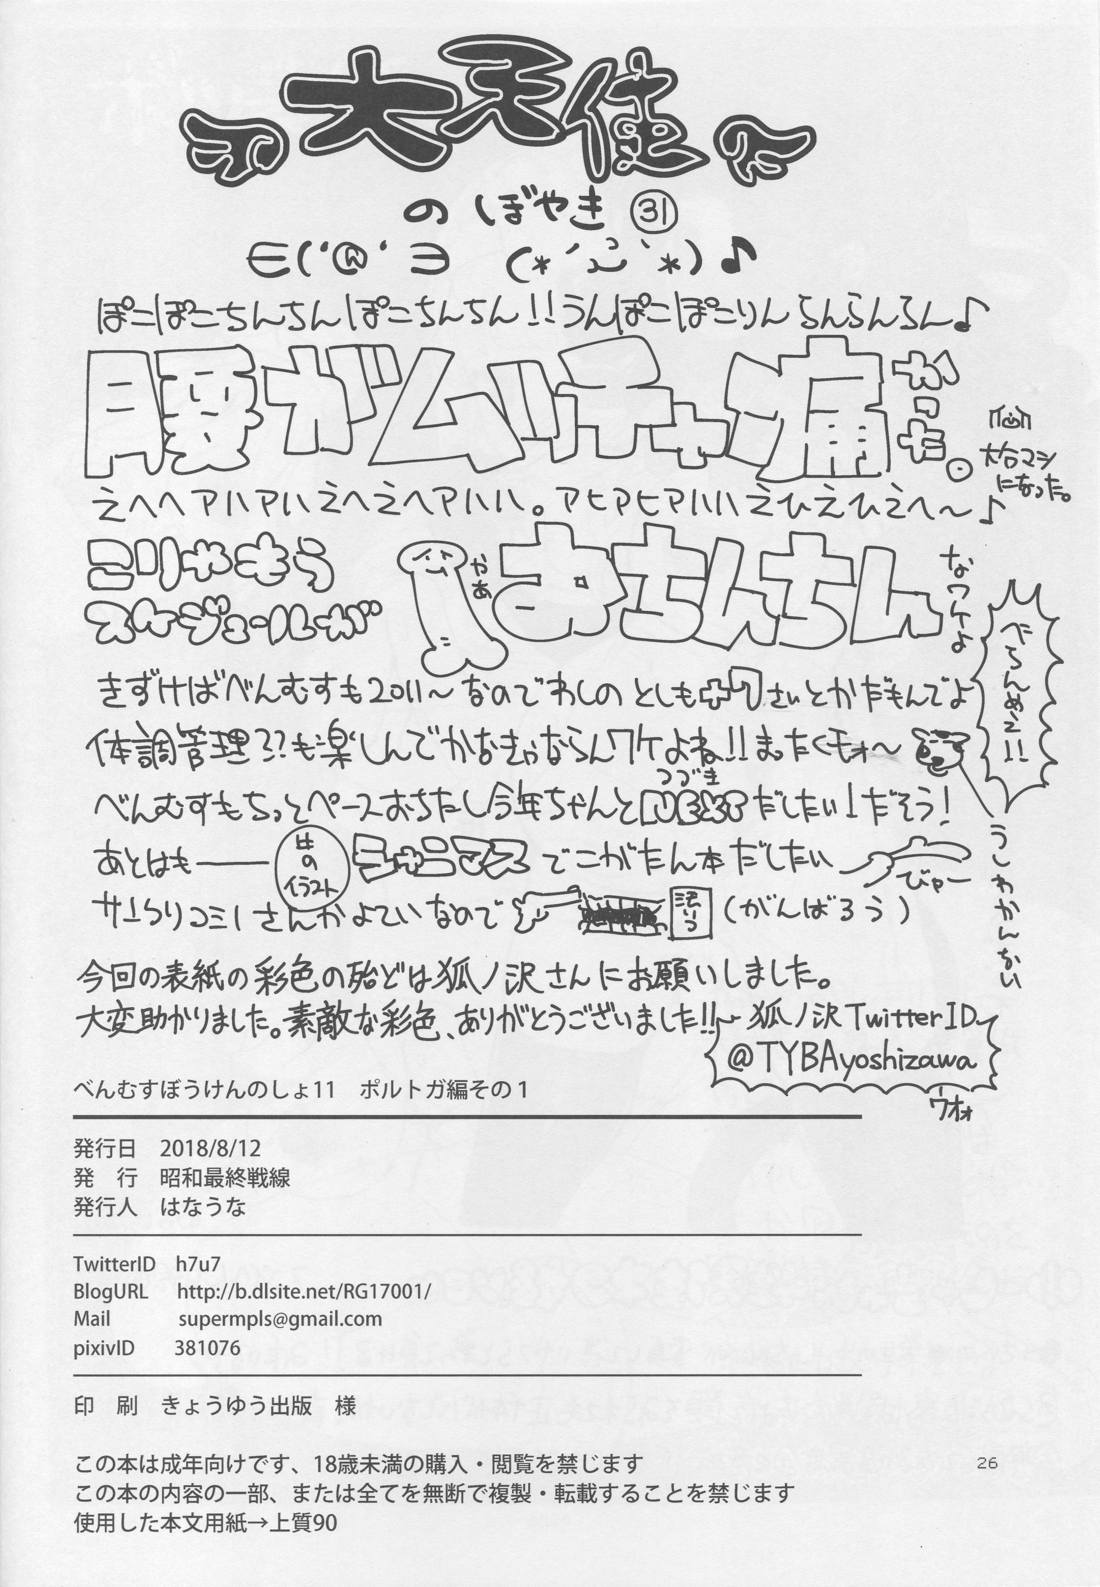 大天使
のぼやき㉛
∈('@'∋ (*´ω｀*)♪
ぽこぽこちんちんぽこちんちん!!うんぽこぽこりんらんらんらん♪
腰がムッチャ痛かった。
大分マシになった。
えへヘアハアハえへえヘアハハ。アヒアヒアハハえひえひえへ〜♪
こりゃもう
スケジュールが
やあ
おちんちん
なワケよ
べらんめえ!!
きずけばべんむすも2011〜なのでわしのとしも+7さいとかだもんでよ
体調管理??も楽しんでかなきゃならんワケよね!!まったくモォ〜
つづき
べんむすもちっとペースおちたし今年ちゃんとNEXTだしたい!だそう!
うしわかんない
あとはも――
牛のイラスト
シャニマスでこがたん本だしたい
びゃー
サークリコミ1さんかよていなので
(がんばろう)
今回の表紙の彩色の殆どは狐ノ沢さんにお願いしました。
大変助かりました。素敵な彩色、ありがとうございました!!〜狐ノ沢TwitterID
@TYBAyoshizawa
ウオォ
べんむすぼうけんのしょ11　ポルトガ編その1
発行日　2018/8/12
発　行　昭和最終戦線
発行人　はなうな
TwitterID　h7u7
BlogURL　http://b.dlsite.net/RG17001/
Mail　supermpls@gmail.com
pixivID　381076
印　刷　きょうゆう出版　様
この本は成年向けです、18歳未満の購入・閲覧を禁じます
この本の内容の一部、または全てを無断で複製・転載することを禁じます
使用した本文用紙→上質90
26